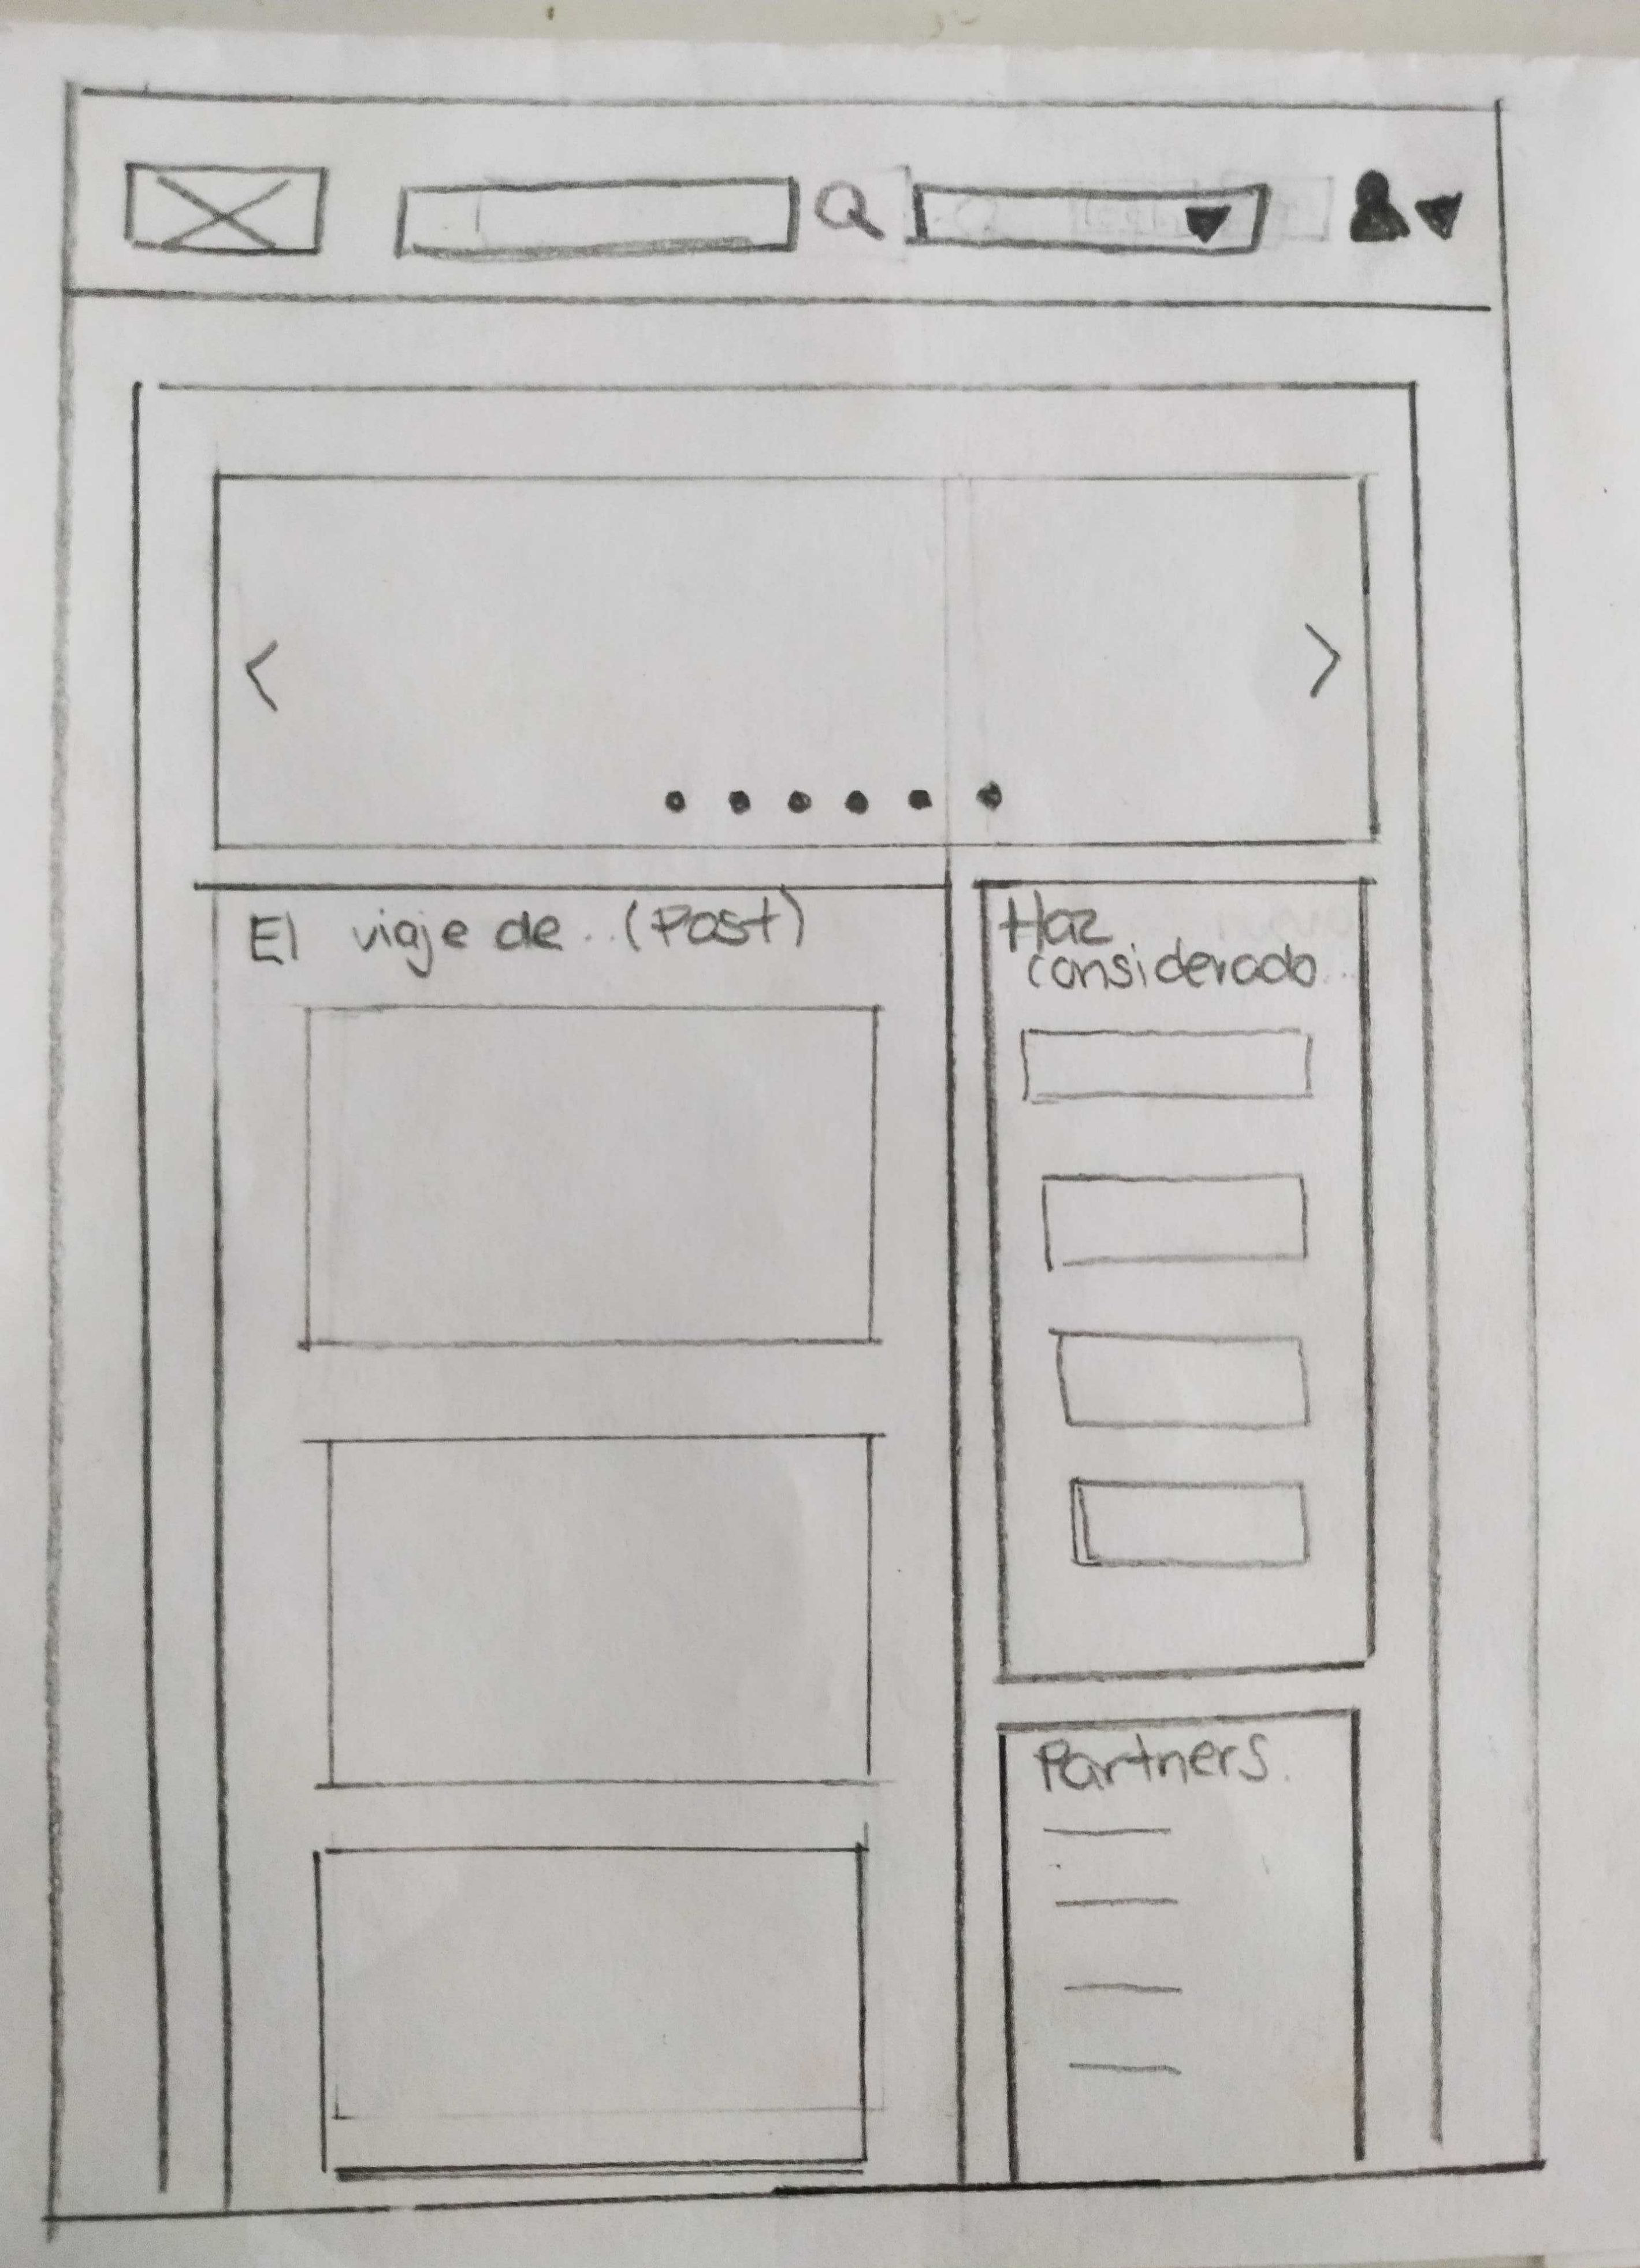 El viaje de .. (Post)
Haz
considerado..
Partners.